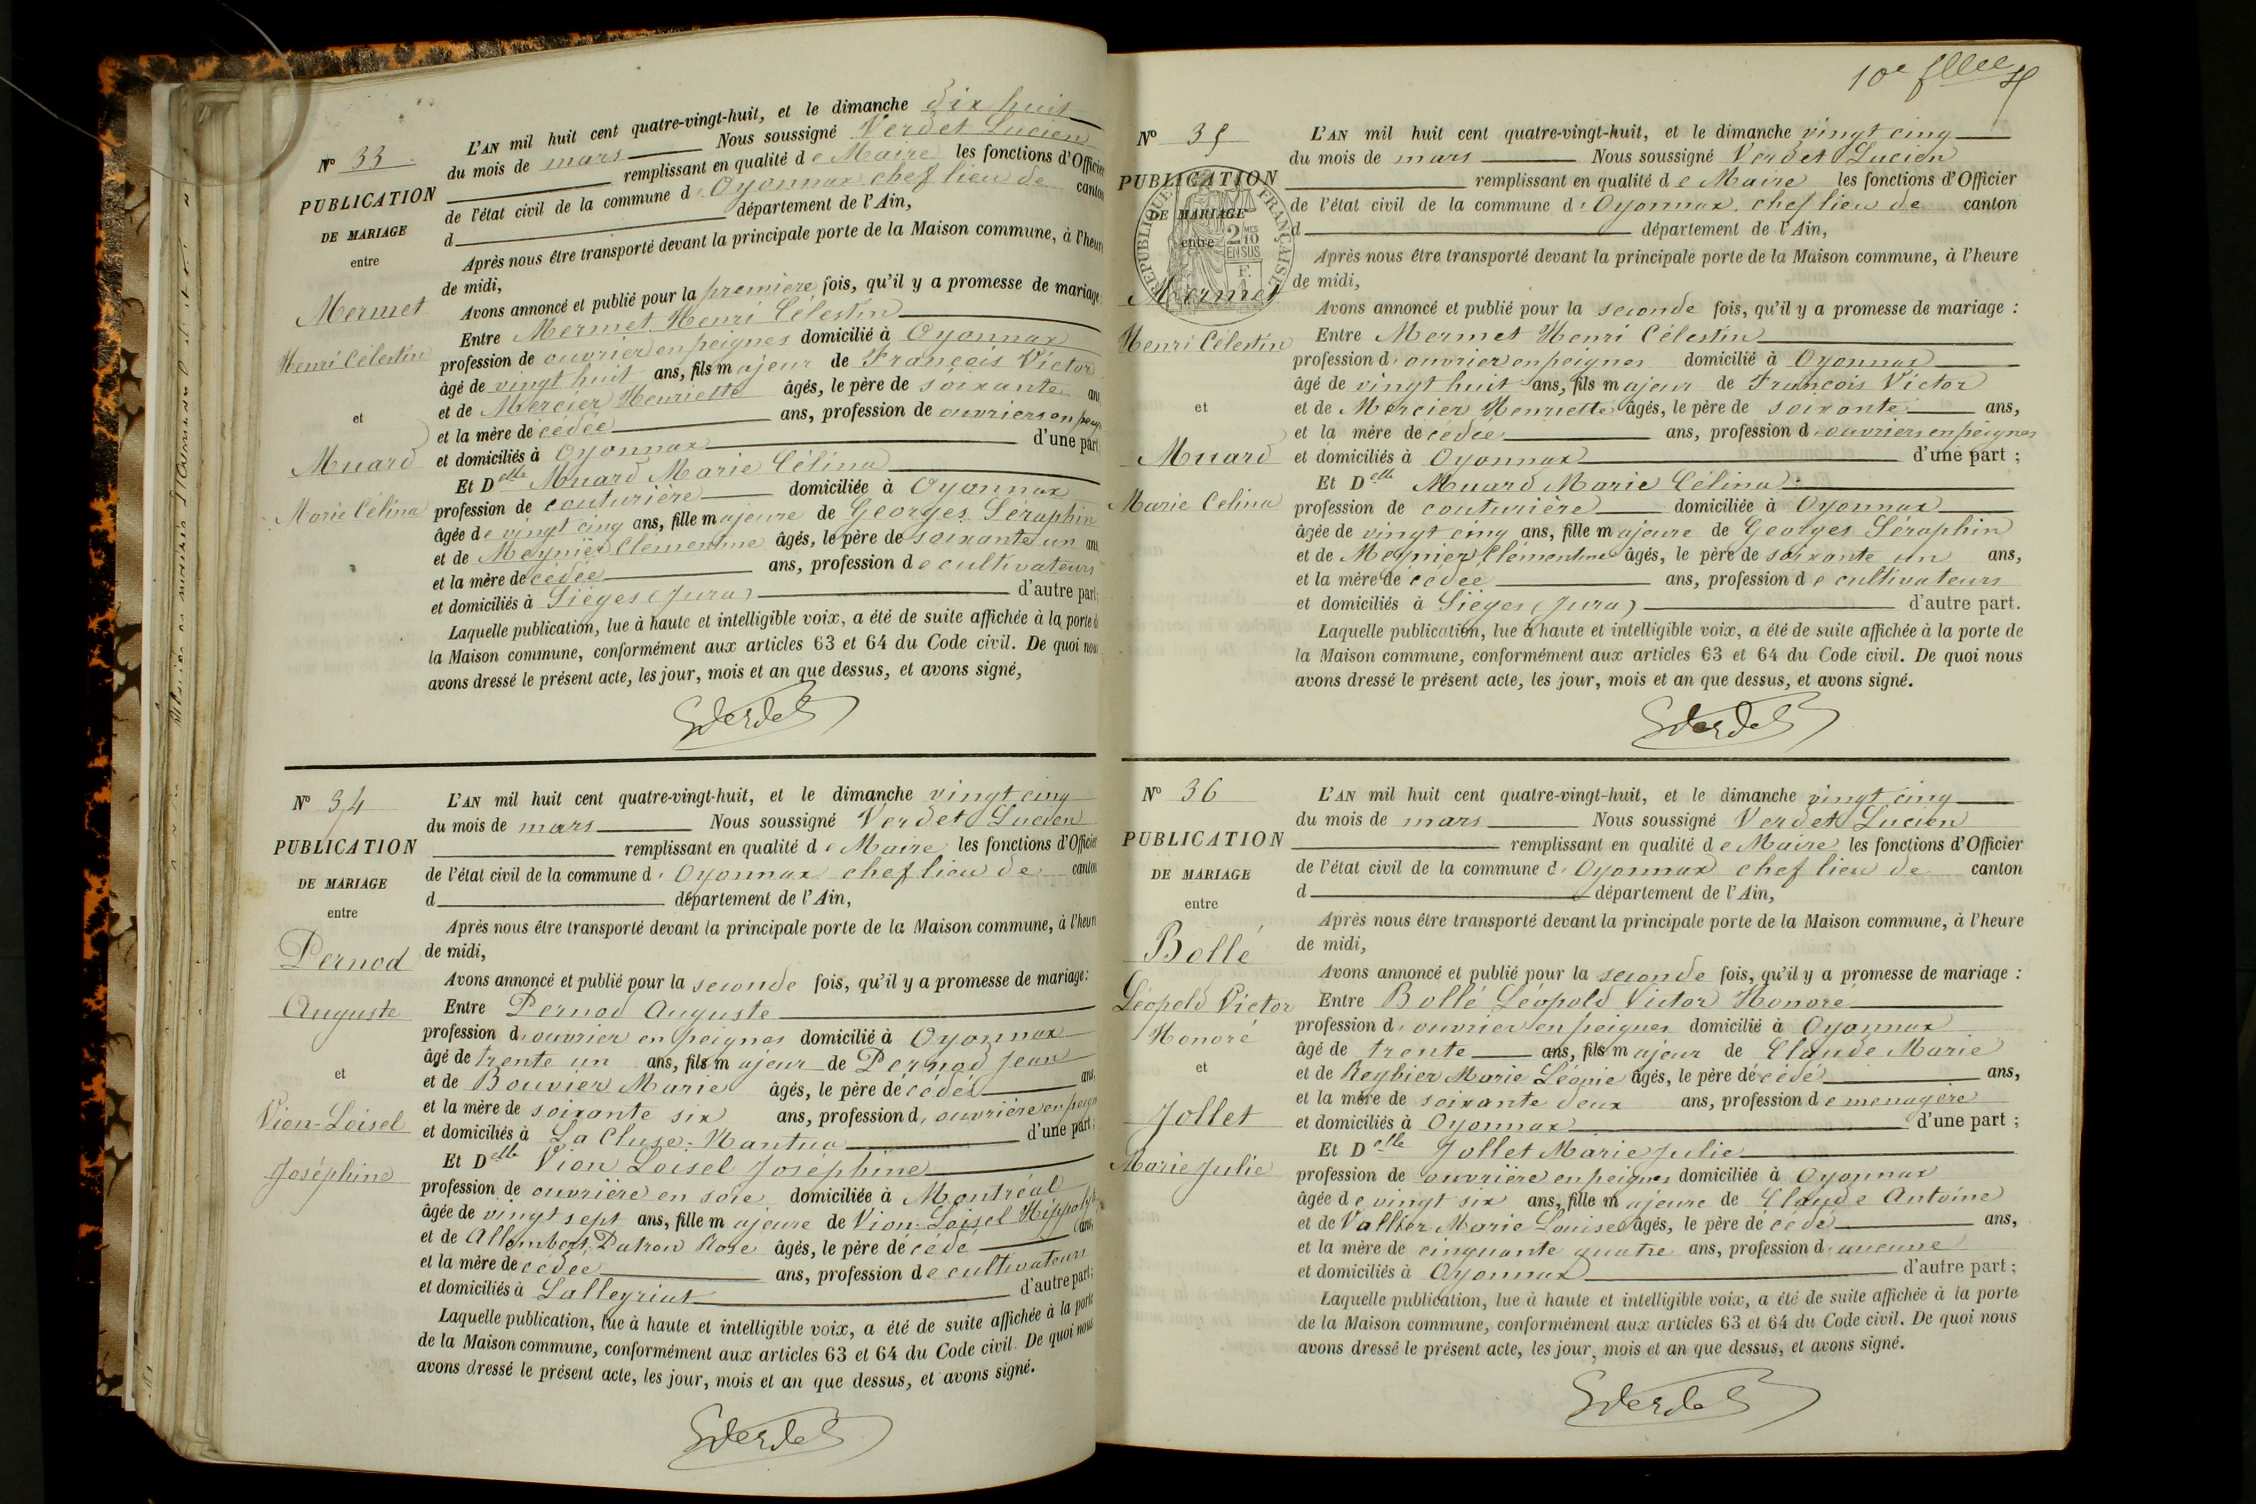 N° 33
PUBLICATION
DE MARIAGE
entre
Mermet
Henri Célestin
et
Muard
Marie Célina
L'AN mil huit cent quatre-vingt-huit, et le dimanche dix huit
du mois de mars Nous soussigné Verdet Lucien
remplissant en qualité de Maire les fonctions d'Officier
de l'état civil de la commune d'Oyonnax chef lieu de canton
d département de l'Ain,
Après nous être transporté devant la principale porte de la Maison commune, à l'heure
de midi,
Avons annoncé et publié pour la première fois, qu'il y a promesse de mariage
Entre Mermet Henri Célestin
profession de ouvrier en peignes domicilié à Oyonnax
âgé de vingt huit ans, fils majeur de François Victor
et de Mercier Henriette âgés, le père de soixante ans
et la mère decédée ans, profession de ouvriers en peig
et domiciliés à Oyonnax d'une part
Et Delle Muard Marie Célina
profession de couturière domiciliée à Oyonnax
âgée de vingt cinq ans, fille majeure de Georges Séraphin
et de Meynier Clémentine âgés, le père de soixante un ans
et la mère decédée ans, profession de cultivateurs
et domiciliés à Siéges (Jura) d'autre part;
Laquelle publication, lue à haute et intelligible voix, a été de suite affichée à la porte d
la Maison commune, conformément aux articles 63 et 64 du Code civil. De quoi nous
avons dressé le présent acte, les jour, mois et an que dessus, et avons signé,
Verdet
N° 34
PUBLICATION
DE MARIAGE
entre
Pernod
Auguste
et
Vion-Loisel
Joséphine
L'AN mil huit cent quatre-vingt-huit, et le dimanche vingt cinq
du mois de mars Nous soussigné Verdet Lucien
remplissant en qualité de Maire les fonctions d'Officier
de l'état civil de la commune d'Oyonnax chef lieu de canton
d département de l'Ain,
Après nous être transporté devant la principale porte de la Maison commune, à l'heure
de midi,
Avons annoncé et publié pour la seconde fois, qu'il y a promesse de mariage:
Entre Pernod Auguste
profession d'ouvrier en peignes domicilié à Oyonnax
âgé de trente un ans, fils majeur de Pernod Jean
et de Bouvier Marie âgés, le père décédé ans,
et la mère de soixante six ans, profession d'ouvrière en peign
et domiciliés à La Cluse-Nantua d'une part;
Et Delle Vion Loisel Joséphine
profession de ouvrière en soie domiciliée à Montréal
âgée de vingt sept ans, fille majeure de Vion-Loisel Hippolyte
et de Allombert Patron Rose âgés, le père décédé ans,
et la mère decédée ans, profession de cultivateurs
et domiciliés à Lalleyriat d'autre part;
Laquelle publication, lue à haute et intelligible voix, a été de suite affichée à la porte
de la Maison commune, conformément aux articles 63 et 64 du Code civil. De quoi nous
avons dressé le présent acte, les jour, mois et an que dessus, et avons signé.
Verdet
10e
N° 35
PUBLICATION
DE MARIAGE
entre
RÉPUBLIQUE FRANÇAISE
2 MES 10 EN SUS
Mermet
Henri Célestin
et
Muard
Marie Célina
L'AN mil huit cent quatre-vingt-huit, et le dimanche vingt cinq
du mois de mars Nous soussigné Verdet Lucien
remplissant en qualité de Maire les fonctions d'Officier
de l'état civil de la commune d'Oyonnax chef lieu de canton
d département de l'Ain,
Après nous être transporté devant la principale porte de la Maison commune, à l'heure
de midi,
Avons annoncé et publié pour la seconde fois, qu'il y a promesse de mariage :
Entre Mermet Henri Célestin
profession d'ouvrier en peignes domicilié à Oyonnax
âgé de vingt huit ans, fils majeur de François Victor
et de Mercier Henriette âgés, le père de soixante ans,
et la mère decédée ans, profession d'ouvriers en peignes
et domiciliés à Oyonnax d'une part ;
Et Delle Muard Marie Célina
profession de couturière domiciliée à Oyonnax
âgée de vingt cinq ans, fille majeure de Georges Séraphin
et de Meynier Clémentine âgés, le père de soixante un ans,
et la mère decédée ans, profession de cultivateurs
et domiciliés à Siéges (Jura) d'autre part.
Laquelle publication, lue à haute et intelligible voix, a été de suite affichée à la porte de
la Maison commune, conformément aux articles 63 et 64 du Code civil. De quoi nous
avons dressé le présent acte, les jour, mois et an que dessus, et avons signé.
Verdet
N° 36
PUBLICATION
DE MARIAGE
entre
Bollé
Léopold Victor
Honoré
et
Jollet
Marie Julie
L'AN mil huit cent quatre-vingt-huit, et le dimanche vingt cinq
du mois de mars Nous soussigné Verdet Lucien
remplissant en qualité de Maire les fonctions d'Officier
de l'état civil de la commune d'Oyonnax chef lieu de canton
d département de l'Ain,
Après nous être transporté devant la principale porte de la Maison commune, à l'heure
de midi,
Avons annoncé et publié pour la seconde fois, qu'il y a promesse de mariage :
Entre Bollé Léopold Victor Honoré
profession d'ouvrier en peignes domicilié à Oyonnax
âgé de trente ans, fils majeur de Claude Marie
et de Reybier Marie Léonie âgés, le père décédé ans,
et la mère de soixante deux ans, profession de ménagère
et domiciliés à Oyonnax d'une part ;
Et Delle Jollet Marie Julie
profession de ouvrière en peignes domiciliée à Oyonnax
âgée de vingt six ans, fille majeure de Claude Antoine
et de Vallier Marie Louise âgés, le père décédé ans,
et la mère de cinquante quatre ans, profession d'aucune
et domiciliés à Oyonnax d'autre part ;
Laquelle publication, lue à haute et intelligible voix, a été de suite affichée à la porte
de la Maison commune, conformément aux articles 63 et 64 du Code civil. De quoi nous
avons dressé le présent acte, les jour, mois et an que dessus, et avons signé.
Verdet